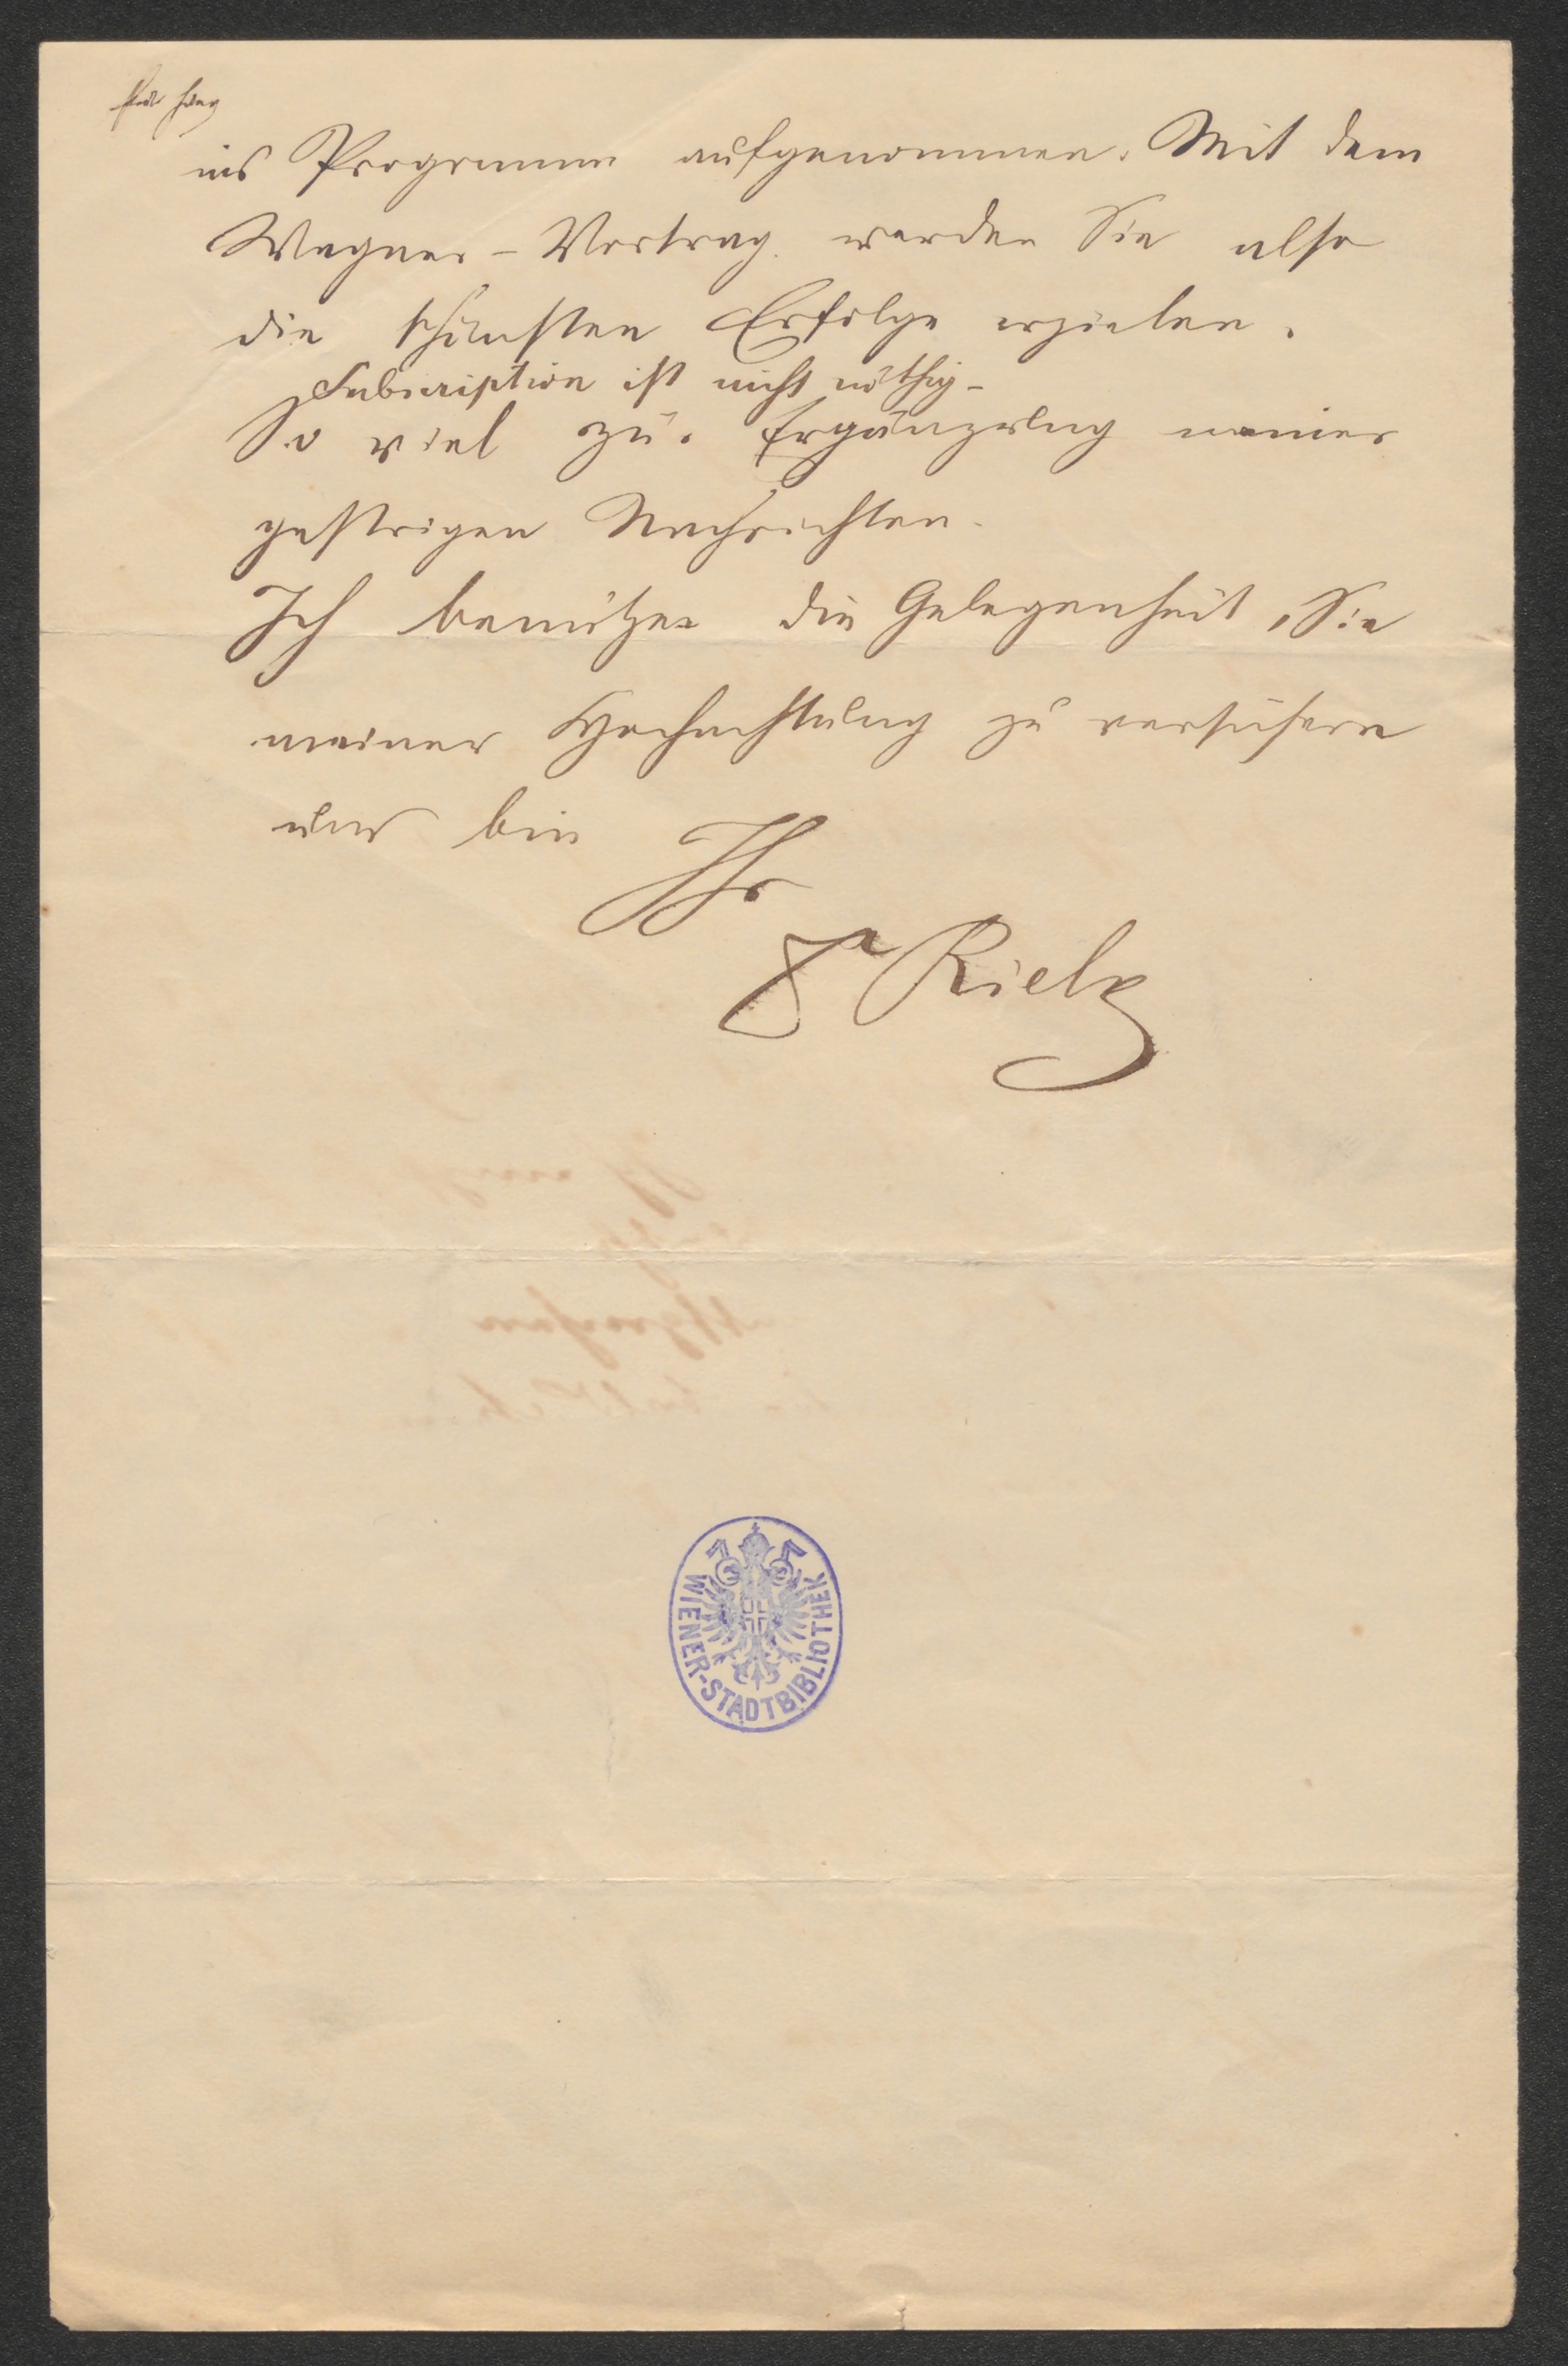 ins Programm aufgenommen. Mit dem
Wagner-Vortrag werden Sie also
die schönsten Erfolge erzielen.
Subscription ist nicht nöthig-
So viel zur Ergänzung meiner
gestrigen Nachrichten.
Ich benütze die Gelegenheit, Sie
meiner Hochachtung zu versichern
und bin
Ihr
Dr Rielz
WIENER-STADTBIBLIOTHEK